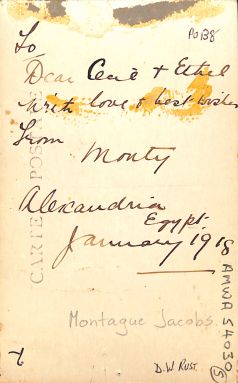 PoB8
To
Dear Cecie & Ethel
With love & best wishes
from
Monty
Alexandria
Egypt.
January 1918
CARTE POSTALE
Montague Jacobs
D.W RUST
AMWA 54030
5